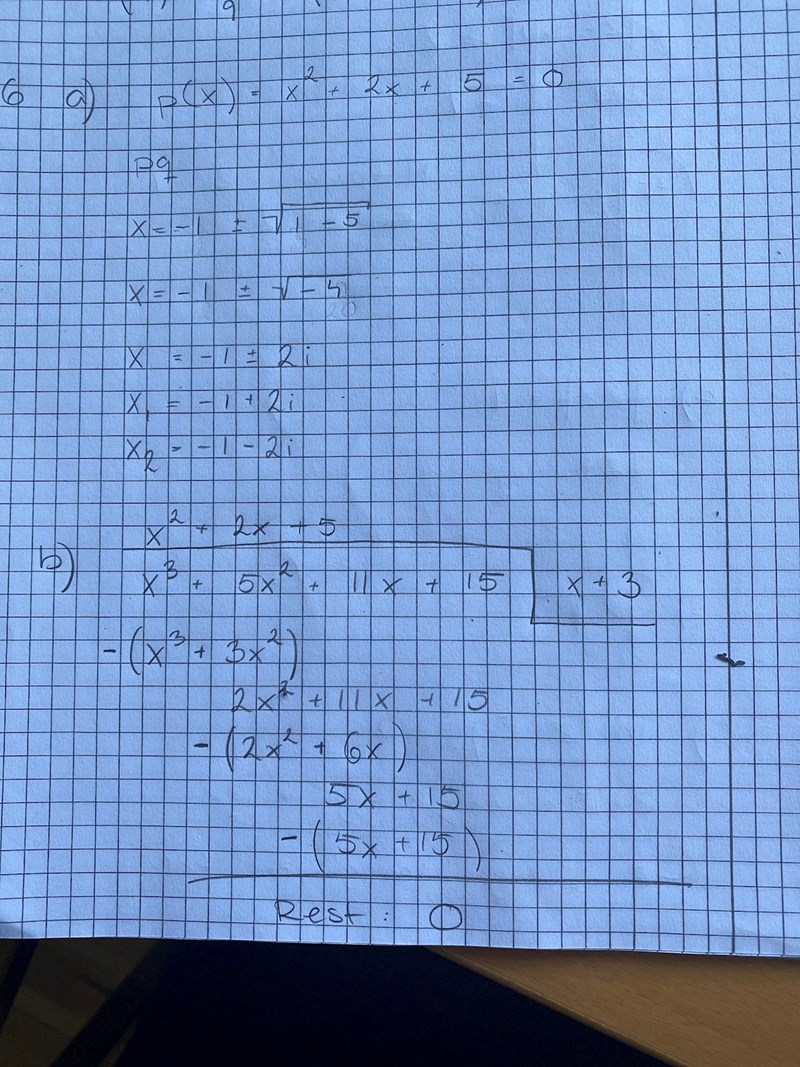 9
6 a) p(x) = x² + 2x + 5 = 0
pq
x = -1 ± √1 - 5
x = -1 ± √-4
x = -1 ± 2i
x₁ = -1 + 2i
x₂ = -1 - 2i
x² + 2x + 5
b) x³ + 5x² + 11x + 15 x + 3
-(x³ + 3x²)
2x² + 11x + 15
-(2x² + 6x)
5x + 15
-(5x + 15)
Rest: 0